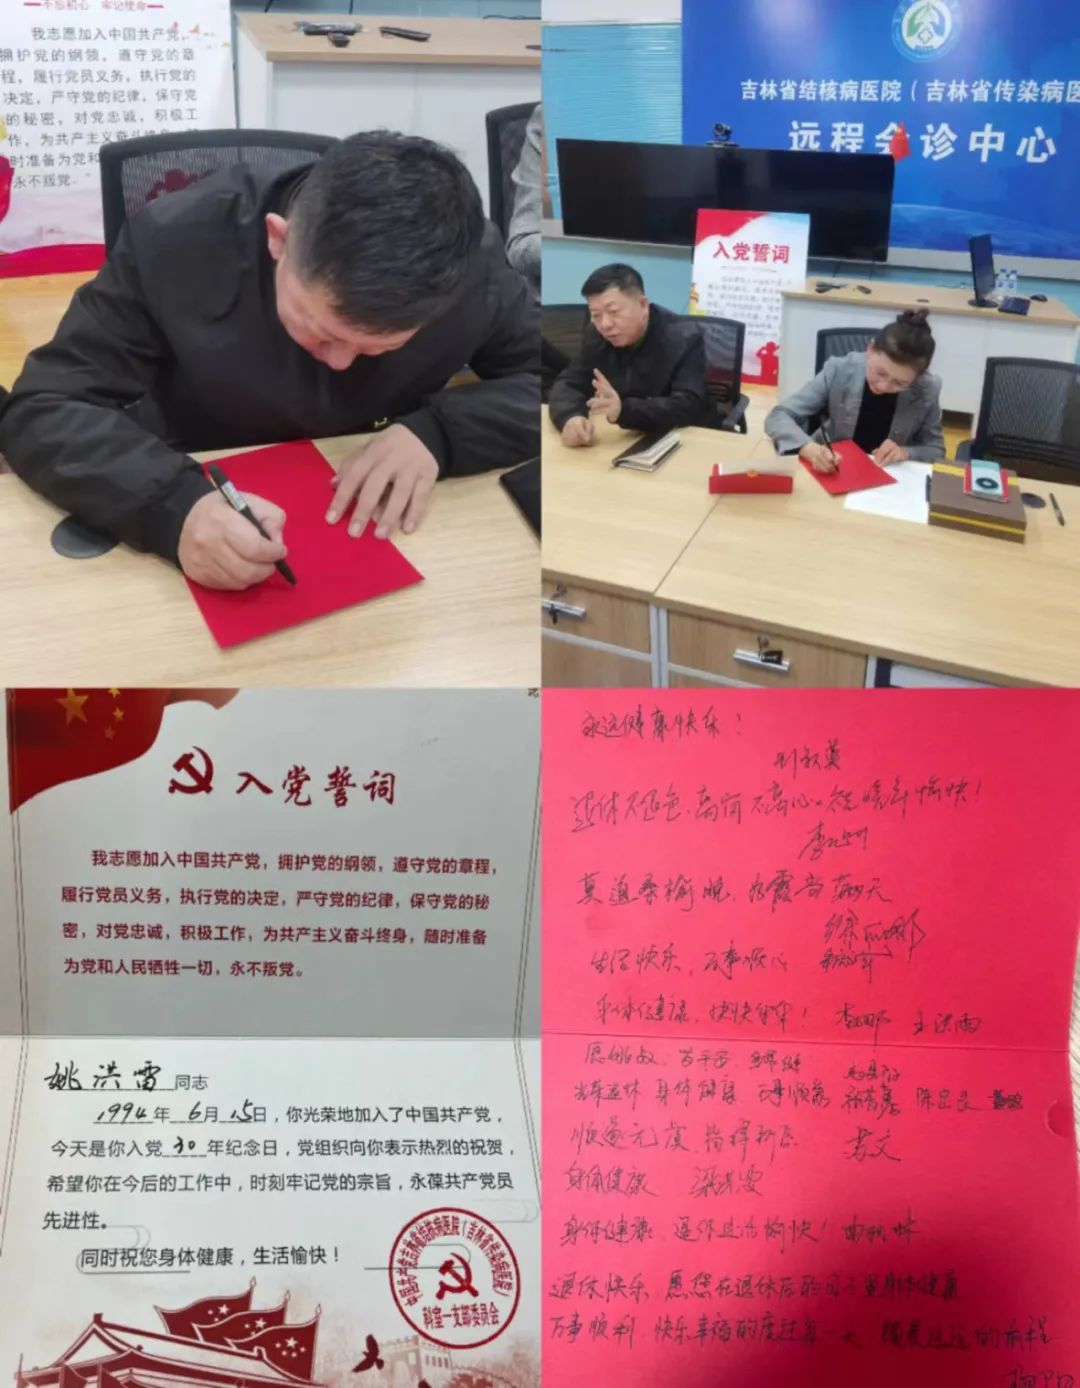 不忘初心 牢记使命
我志愿加入中国共产党,
拥护党的纲领,遵守党的章
程,履行党员义务,执行党的
决定,严守党的纪律,保守党
的秘密,对党忠诚,积极工
作,为共产主义奋斗终身,
时准备为党和
永不叛党。”
吉林省结核病医院(吉林省传染病医
远程会诊中心
入党誓词
入党誓词
我志愿加入中国共产党,拥护党的纲领,遵守党的章程,
履行党员义务,执行党的决定,严守党的纪律,保守党的秘
密,对党忠诚,积极工作,为共产主义奋斗终身,随时准备
为党和人民牺牲一切,永不叛党。
姚洪雷同志
1994年6月15日,你光荣地加入了中国共产党,
今天是你入党30年纪念日,党组织向你表示热烈的祝贺,
希望你在今后的工作中,时刻牢记党的宗旨,永葆共产党员
先进性。
同时祝您身体健康,生活愉快!
中国共产党吉林省结核病医院(吉林省传染病医院)
科室一支部委员会
永远健康快乐!
退休不退色,离岗不离心。祝晚年愉快!
莫道桑榆晚,为霞尚满天
生活快乐,万事顺心
身体健康,快快乐乐! 王洪雨
身体健康 万事顺意
苏文
身体健康
身体健康,退休生活愉快!
退休快乐,愿您在退休后的日子里身体健康
万事顺利,快乐幸福的度过每一天 的前程